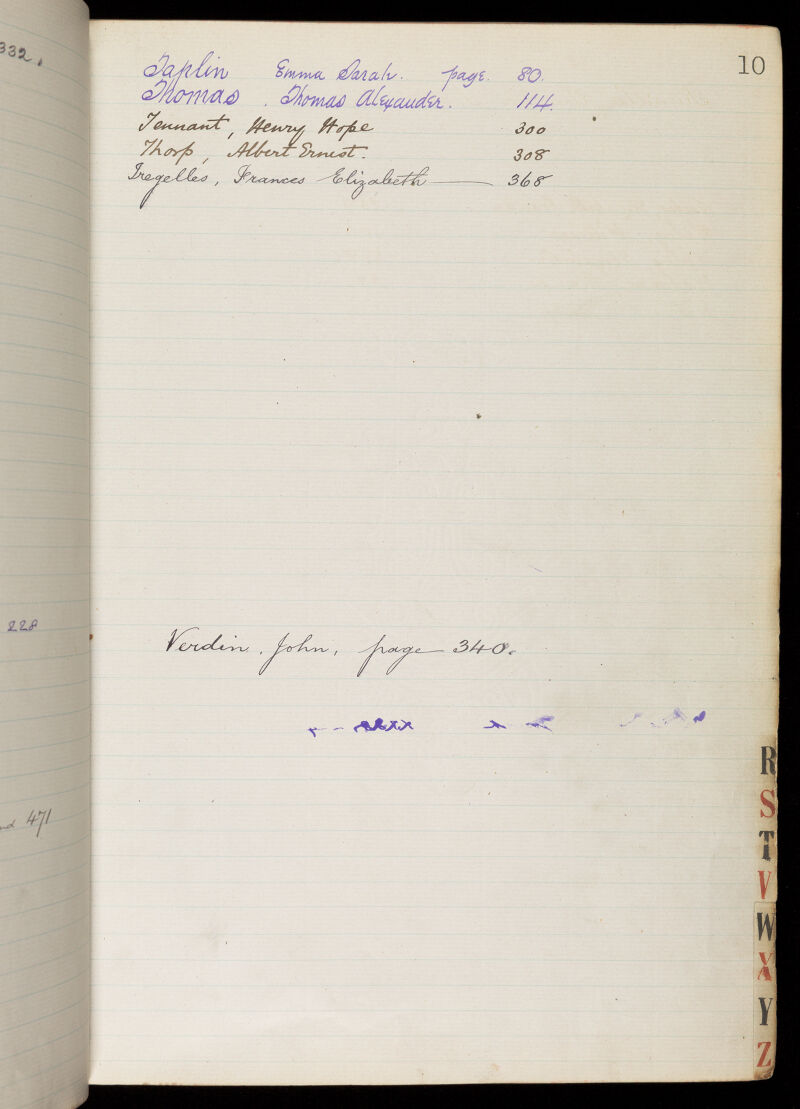 332.
10
Taplin Emma Sarah. page. 80.
Thomas . Thomas Alexander. 114.
Tennant, Henry Hope 300
Thorp, Albert Ernest. 308
Tregelles, Frances Elizabeth — 368
228
Verdin. John, page 340.
471
R
S
T
V
W
X
Y
Z